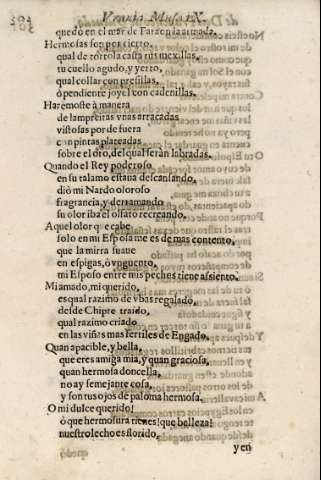 Vrania Musa IX.
quedò en el mar de Faraon la armada.
Hermosas son por cierto,
qual de tortola casta tus mexillas,
tu cuello agudo, y yerto,
qual collar con presillas,
ò pendiente joyel con cadenillas.
Haremoste à manera
de lampreitas vnas arracadas
vistosas por de fuera
con pintas plateadas
sobre el oro, del qual seràn labradas.
Quando el Rey poderoso
en su talamo estaua descansando,
diò mi Nardo oloroso
fragrancia, y derramando
su olor iba el olfato recreando.
Aquel olor que cabe
solo en mi Esposa me es de mas contento,
que la mirra suaue
en espigas, ò vnguento,
mi Esposo entre mis peches tiene assiento.
Mi amado, mi querido,
es qual razimo de vbas regalado,
desde Chipre traido,
qual razimo criado
en las viñas mas fertiles de Engado.
Quan apacible, y bella,
que eres amiga mia, y quan graciosa,
quan hermosa doncella,
no ay semejante cosa,
y son tus ojos de paloma hermosa.
O mi dulce querido!
ò que hermosura tienes! que belleza!
nuestro lecho es florido,
y en